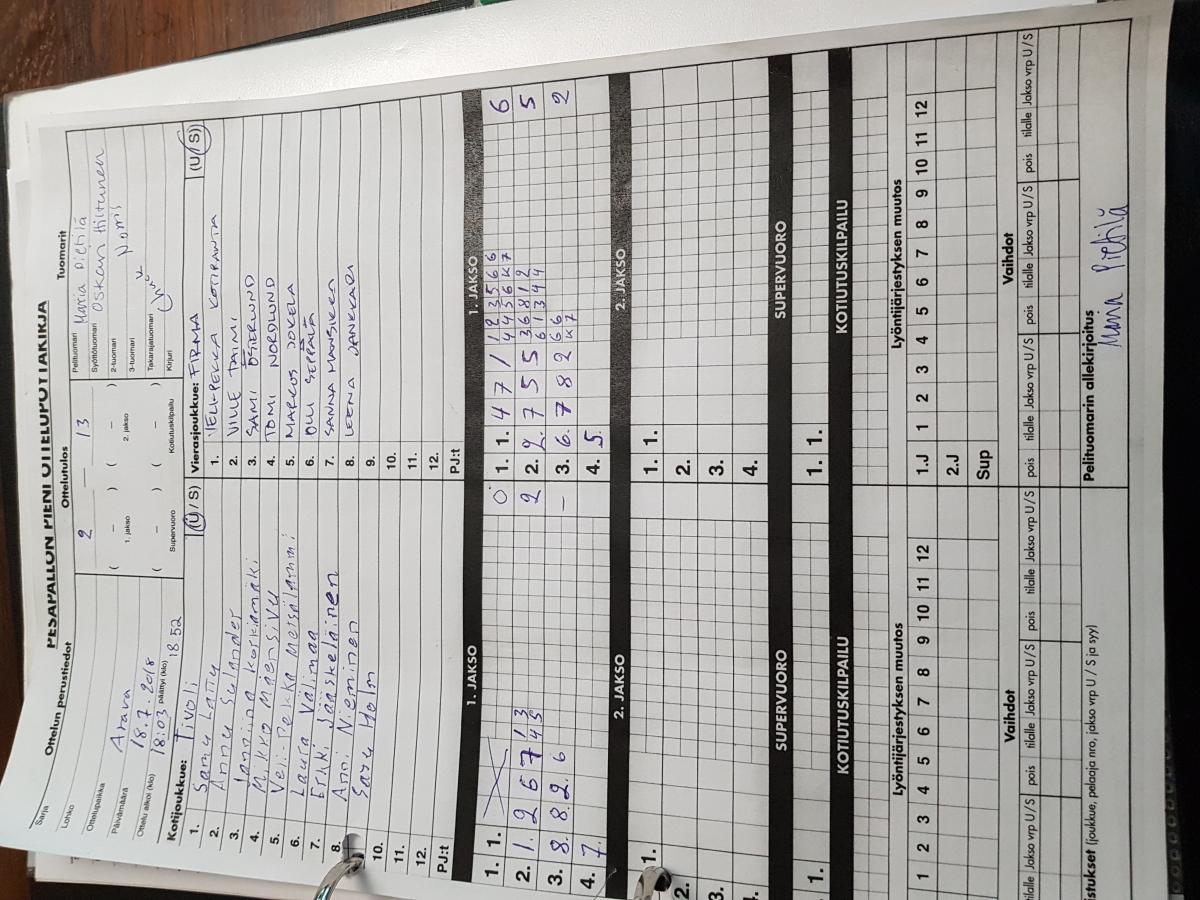 PESÄPALLON PIENI OTTELUPÖYTÄKIRJA
Sarja
Ottelun perustiedot
Ottelutulos
Tuomarit
Lohko
Ottelupaikka Arava
Päivämäärä 18.7.2018
Ottelu alkoi (klo) 18:03 päättyi (klo) 18 52
2 — 13
( – ) ( – )
1. jakso 2. jakso
( – ) ( – )
Supervuoro Kotiutuskilpailu
Pelituomari Maria Pietilä
Syöttötuomari Oskari Hiltunen
2-tuomari
3-tuomari
Takarajatuomari
Kirjuri
Kotijoukkue: Tivoli (U / S)
1. Samu Latty
2. Annu Sulander
3. Janniina Koskamäki
4. Mikko Mäensivu
5. Veli-Pekka Metsälammi
6. Laura Välimaa
7. Erkki Jääskeläinen
8. Anni Nieminen
Satu Holm
10.
11.
12.
PJ:t
Vierasjoukkue: FIRMA (U / S)
1. VELI-PEKKA KOTIRANTA
2. VILLE TAIMI
3. SAMI ÖSTERLUND
4. TOMI NORDLUND
5. MARCUS JOKELA
6. OLLI SEPPÄLÄ
7. SANNA MANSIKEN
8. LEENA JANKKARI
9.
10.
11.
12.
PJ:t
1. JAKSO
1. 1. 0
2. 1. 2 6 7 1 3 2
4 5
3. 8. 8. 2. 6 –
4. 7.
1. JAKSO
1. 1. 4 7 / 1 2 3 5 6 6 6
4 4 5 6 K 7
2. 2. 7 5 5 3 6 8 1 2 5
6 1 3 4 4
3. 6. 7 8 2 6 6 2
K 7
4. 5.
2. JAKSO
1.
2.
3.
4.
2. JAKSO
1. 1.
2.
3.
4.
SUPERVUORO
1.
SUPERVUORO
1. 1.
KOTIUTUSKILPAILU
KOTIUTUSKILPAILU
Lyöntijärjestyksen muutos
1 2 3 4 5 6 7 8 9 10 11 12
Lyöntijärjestyksen muutos
1.J 1 2 3 4 5 6 7 8 9 10 11 12
2.J
Sup
Vaihdot
tilalle Jakso vrp U / S pois tilalle Jakso vrp U / S pois tilalle Jakso vrp U / S
Vaihdot
pois tilalle Jakso vrp U / S pois tilalle Jakso vrp U / S pois tilalle Jakso vrp U / S
istukset (joukkue, pelaaja nro, jakso vrp U / S ja syy)
Pelituomarin allekirjoitus
Maria Pietilä